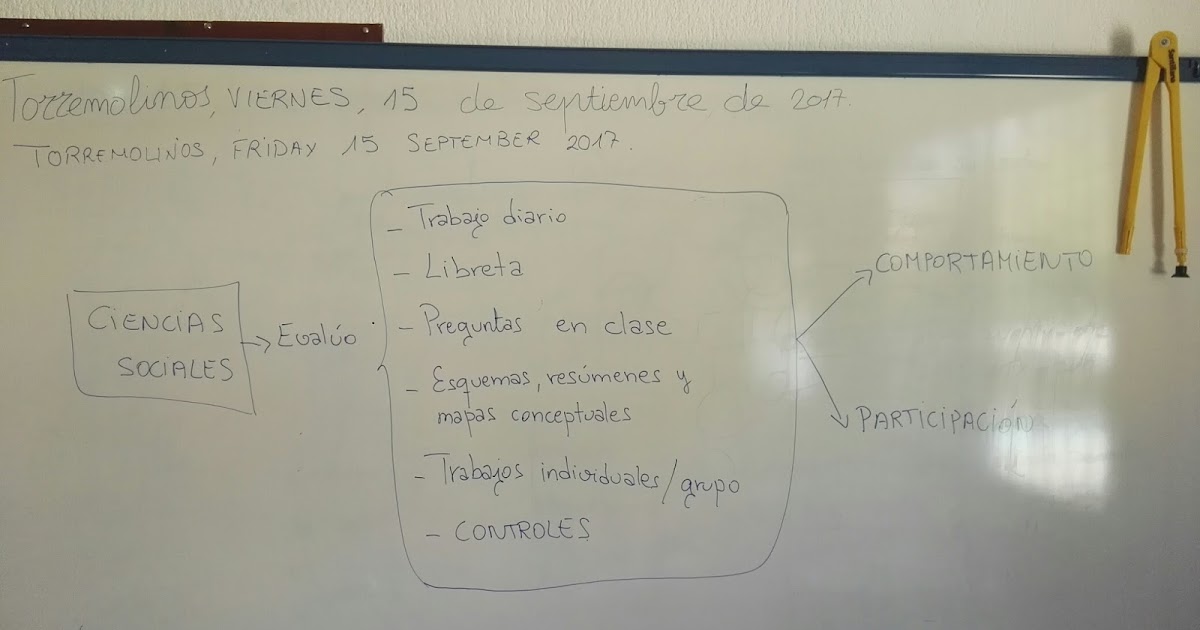 Torremolinos, VIERNES, 15 de septiembre de 2017.
TORREMOLINOS, FRIDAY 15 SEPTEMBER 2017.
CIENCIAS
SOCIALES
Evalúo
- Trabajo diario
- Libreta
- Preguntas en clase
- Esquemas, resúmenes y
mapas conceptuales
- Trabajos individuales/grupo
- CONTROLES
COMPORTAMIENTO
PARTICIPACIÓN
Santillana